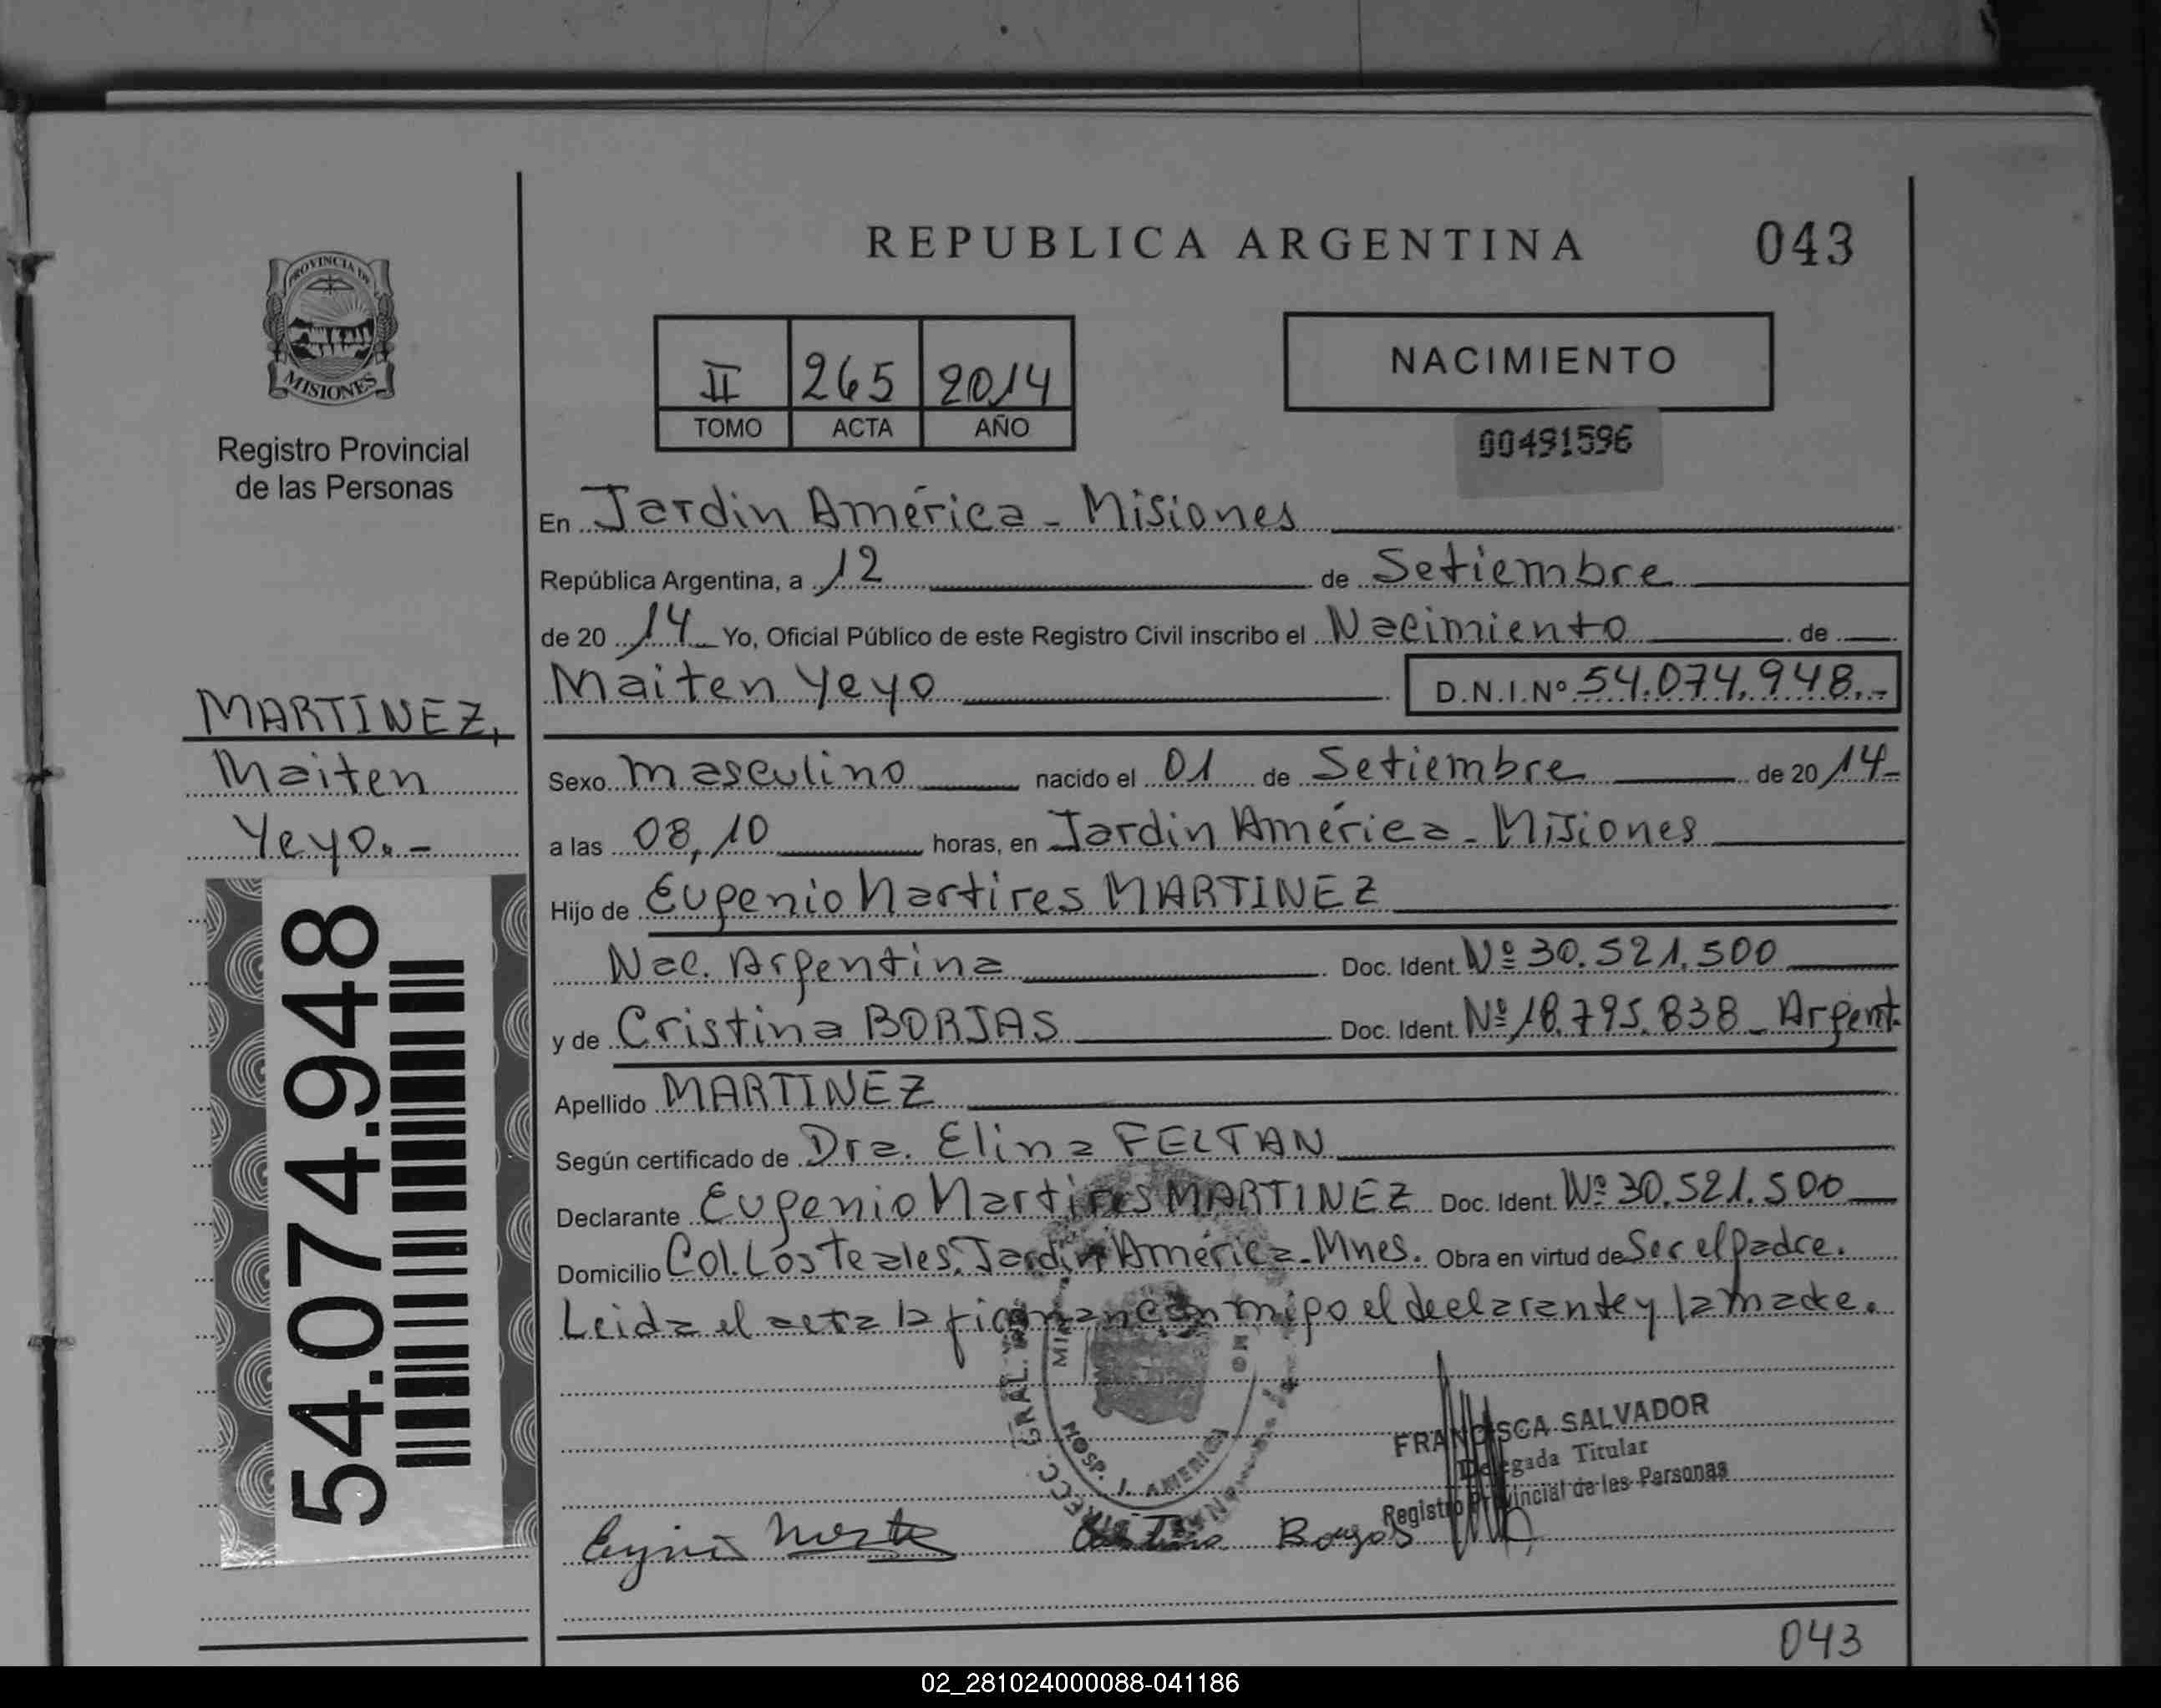 REPUBLICA ARGENTINA
043
PROVINCIA DE
MISIONES
Registro Provincial
de las Personas
II 265 2014
TOMO ACTA AÑO
NACIMIENTO
00491596
En Jardin América - Misiones
República Argentina, a 12 de Setiembre
de 20 14 Yo, Oficial Público de este Registro Civil inscribo el Nacimiento de
Maiten Yeyo D.N.I.Nº 54.074.948.-
MARTINEZ,
Maiten
Yeyo.-
54.074.948
Sexo masculino nacido el 01 de Setiembre de 20 14-
a las 08,10 horas, en Jardin América - Misiones
Hijo de Eugenio Martires MARTINEZ
Nac. Argentina Doc. Ident. Nº 30.521.500
y de Cristina BORJAS Doc. Ident. Nº 18.795.838 - Argent.
Apellido MARTINEZ
Según certificado de Dra. Elina FELTAN
Declarante Eugenio Martires MARTINEZ Doc. Ident. Nº 30.521.500
Domicilio Col. Los Teales. Jardin América - Mnes. Obra en virtud de Ser el padre.
Leida el acta la firman con migo el declarante y la madre.
HOSP. J. AMERICA
FRANCISCA SALVADOR
Delegada Titular
Registro Provincial de las Personas
043
02_281024000088-041186